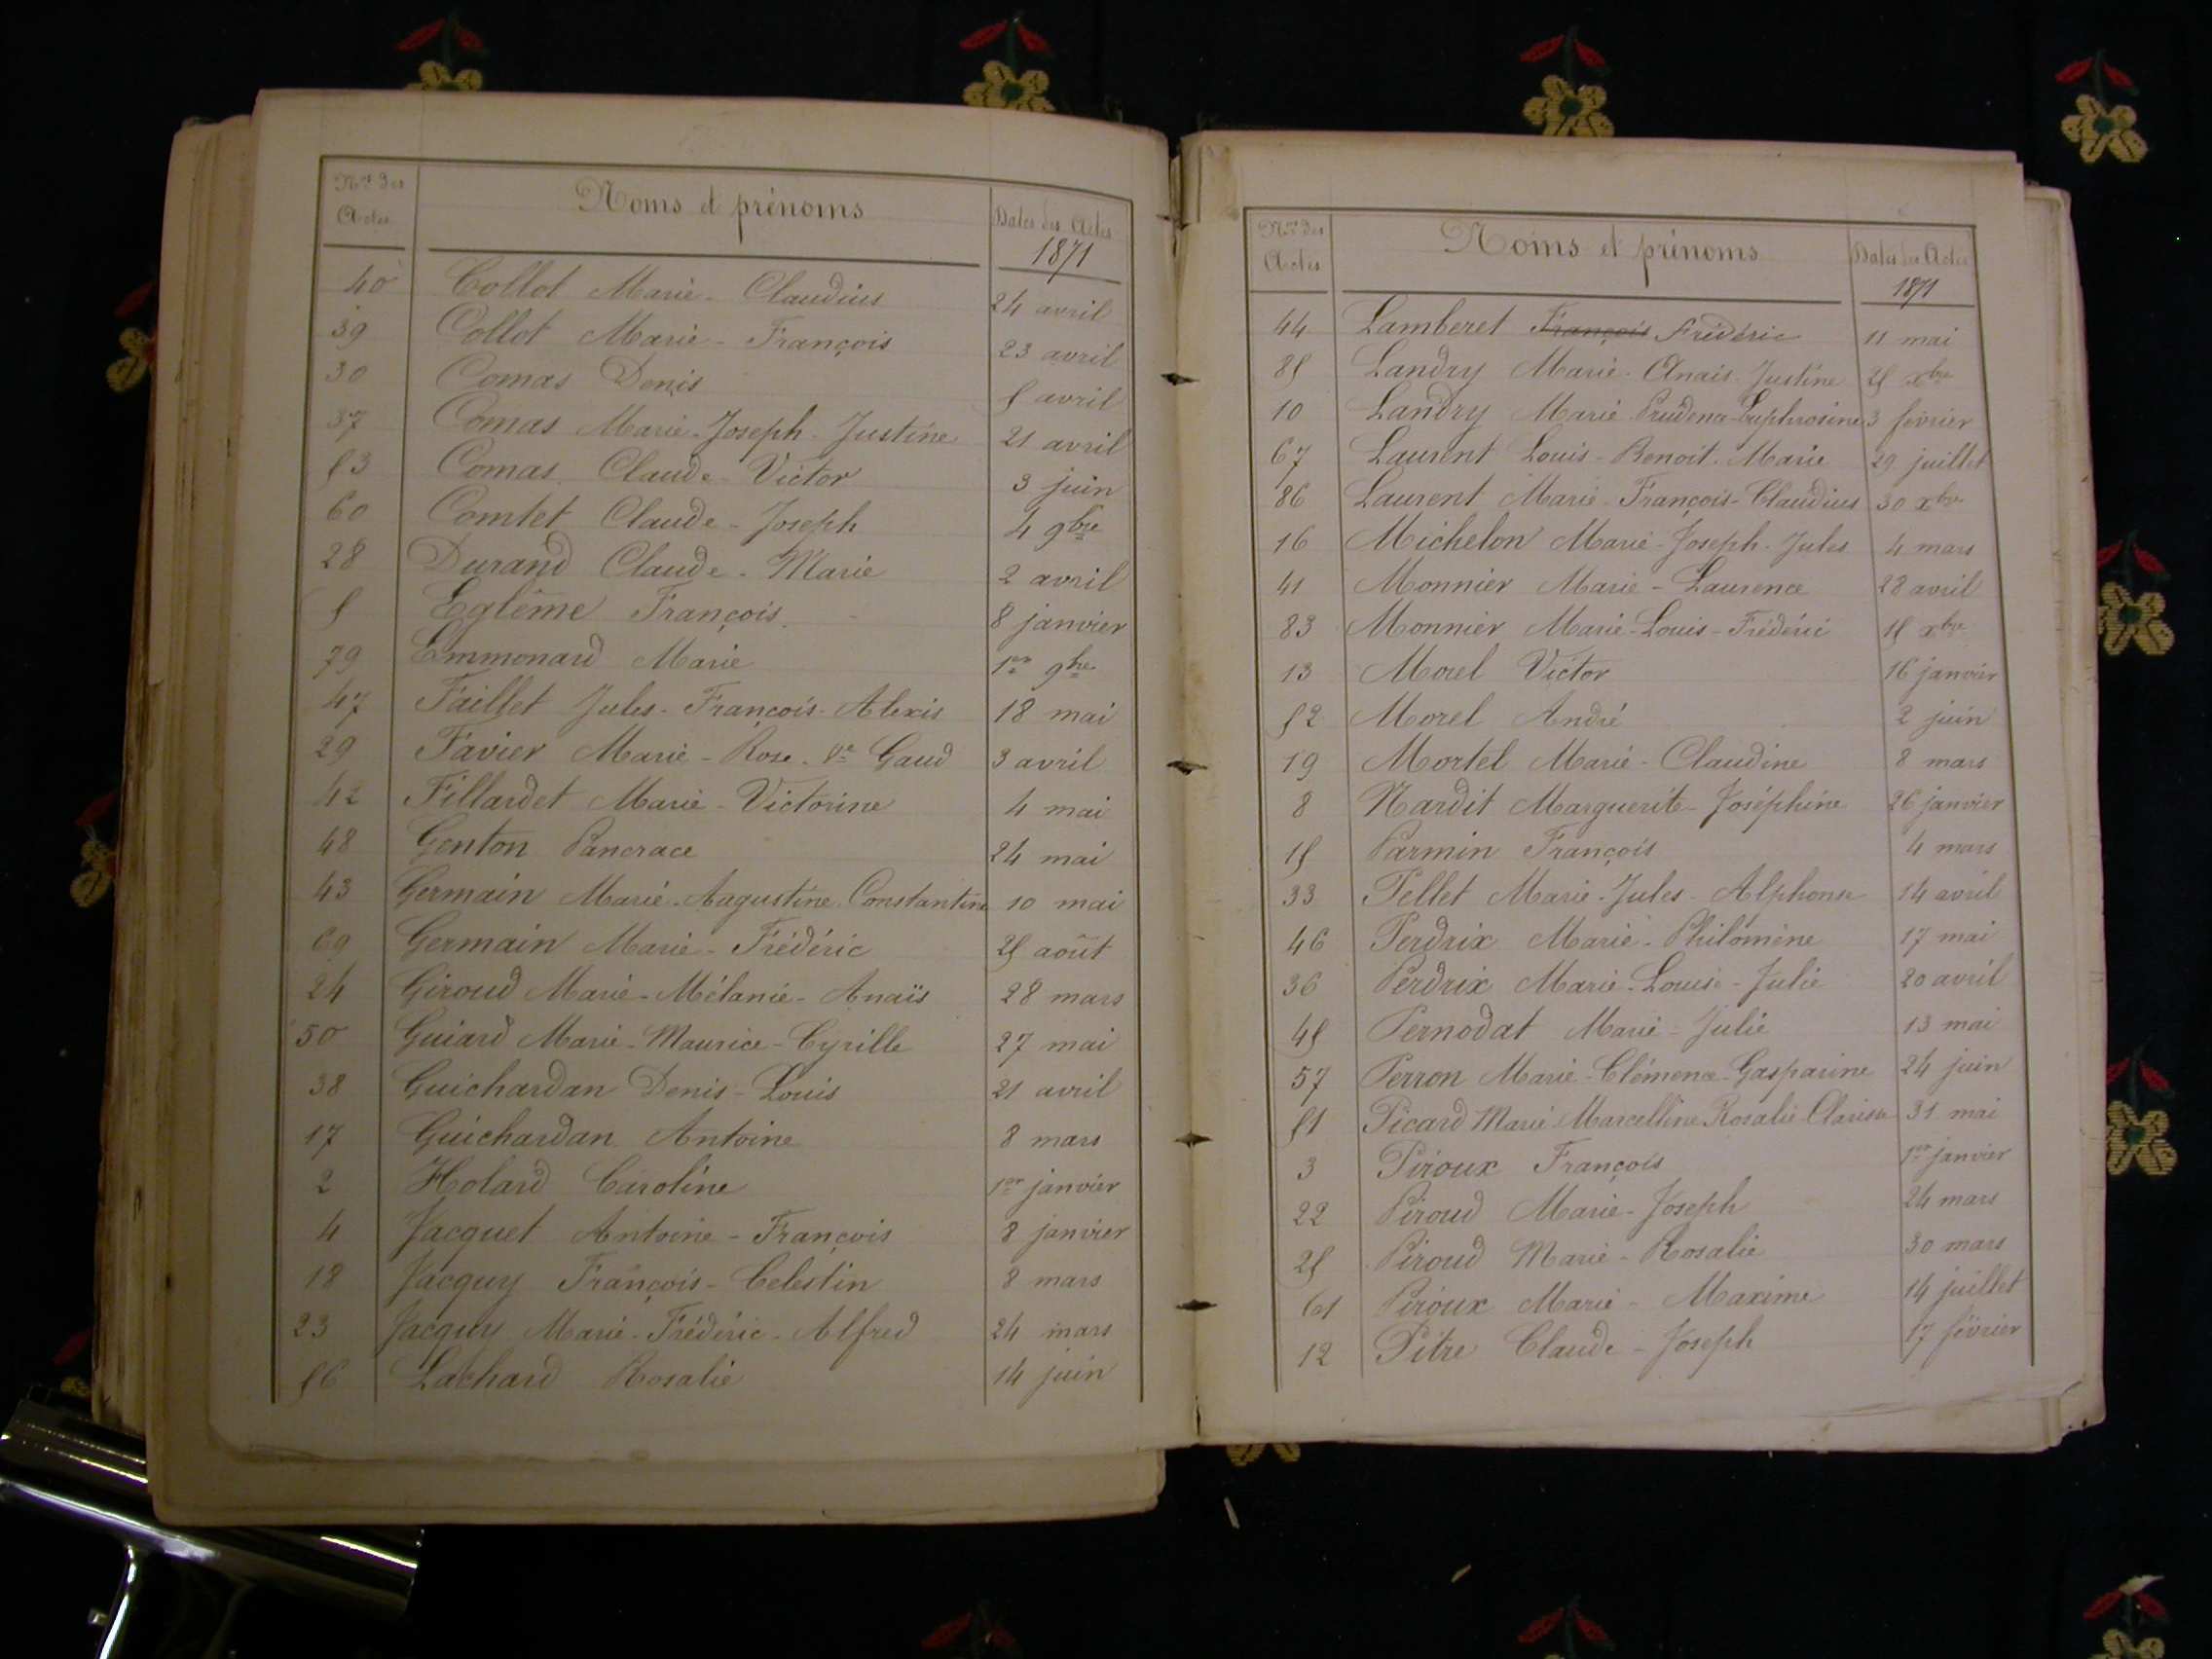 Nos des Actes Noms et prénoms Dates des Actes
1871
40 Collot Marie-Claudius 24 avril
39 Collot Marie-François 23 avril
30 Comas Denis 5 avril
37 Comas Marie-Joseph-Justine 21 avril
53 Comas Claude-Victor 3 juin
60 Comtet Claude-Joseph 4 9bre
28 Durand Claude-Marie 2 avril
5 Eglême François 8 janvier
79 Emmonard Marie 1er 9bre
47 Faillet Jules-François-Alexis 18 mai
29 Favier Marie-Rose-Ve Gaud 3 avril
42 Fillardet Marie-Victorine 4 mai
48 Genton Pancrace 24 mai
43 Germain Marie-Augustine Constantine 10 mai
69 Germain Marie-Frédéric 25 août
24 Giroud Marie-Mélanie-Anaïs 28 mars
50 Guiard Marie-Maurice-Cyrille 27 mai
38 Guichardan Denis-Louis 21 avril
17 Guichardan Antoine 8 mars
2 Holard Caroline 1er janvier
4 Jacquet Antoine-François 8 janvier
18 Jacquy François-Celestin 8 mars
23 Jacquy Marie-Frédéric-Alfred 24 mars
56 Lachard Rosalie 14 juin
Nos des Actes Noms et prénoms Dates des Actes
1871
44 Lamberet François Frédéric 11 mai
85 Landry Marie-Anais-Justine 25 xbre
10 Landry Marie Prudence-Euphrosine 3 février
67 Laurent Louis-Benoit-Marie 29 juillet
86 Laurent Marie-François-Claudius 30 xbre
16 Michelon Marie-Joseph-Jules 4 mars
41 Monnier Marie-Laurence 28 avril
83 Monnier Marie-Louis-Frédéric 15 xbre
13 Morel Victor 16 janvier
52 Morel André 2 juin
19 Mortel Marie-Claudine 8 mars
8 Nardit Marguerite-Joséphine 26 janvier
15 Parmin François 4 mars
33 Pellet Marie-Jules-Alphonse 14 avril
46 Perdrix Marie-Philomène 17 mai
36 Perdrix Marie-Louise-Julie 20 avril
45 Pernodat Marie-Julie 13 mai
57 Perron Marie-Clémence-Gasparine 24 juin
51 Picard Marie Marcelline Rosalie Clarisse 31 mai
3 Piroux François 1er janvier
22 Piroud Marie-Joseph 24 mars
25 Piroud Marie-Rosalie 30 mars
61 Piroux Marie-Maxime 14 juillet
12 Pitre Claude-Joseph 17 février